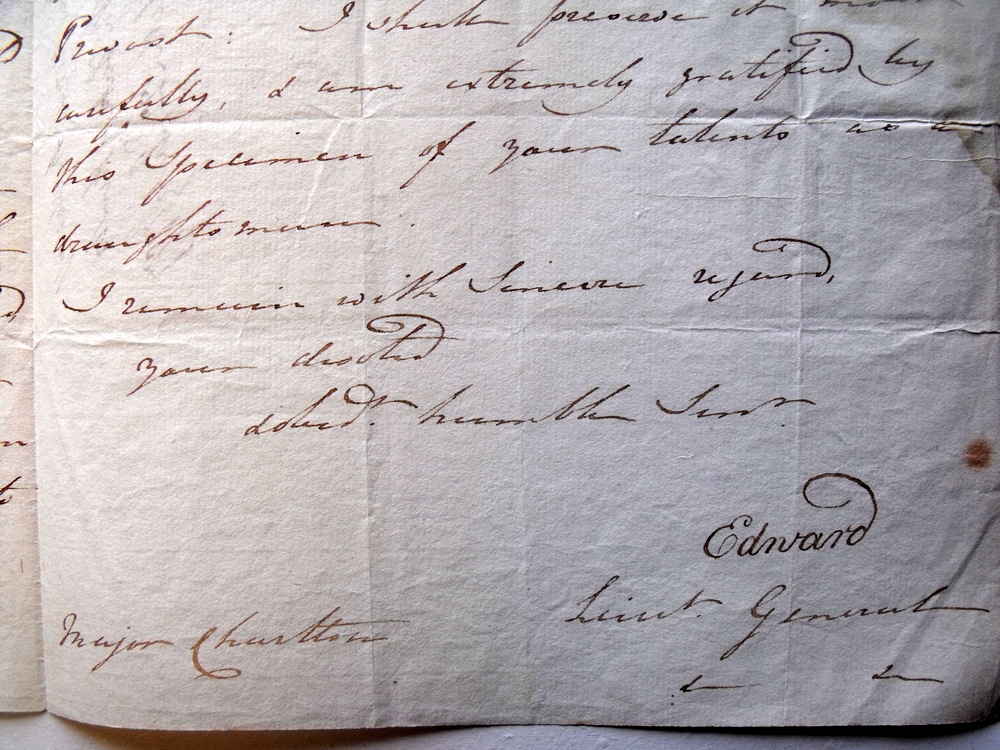 Prevost. I shall preserve it most
carefully, & am extremely gratified by
this Specimen of your talents as a
draughtsman.
I remain with Sincere regard,
your devoted
obedt. humble Servt
Edward
Lieut. General
Major Charlton
& &